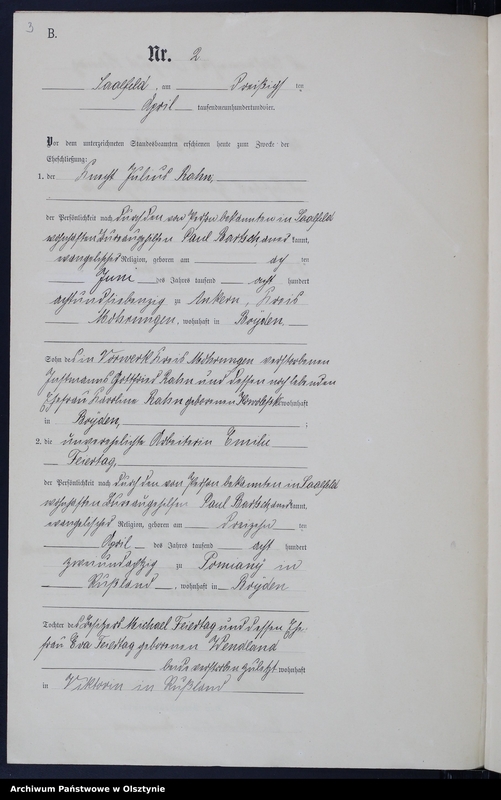 3
B.
Nr. 2
Saalfeld, am Dreißigsten
April tausendneunhundertundvier.
Vor dem unterzeichneten Standesbeamten erschienen heute zum Zwecke der
Eheschließung:
1. der Knecht Julius Rahn,
der Persönlichkeit nach durch den von Person bekannten in Saalfeld
wohnhaften Bureaugehilfen Paul Bartsch anerkannt,
evangelischer Religion, geboren am ten
Juni des Jahres tausend acht hundert
achtundsiebenzig zu Ankern, Kreis
Mohrungen, wohnhaft in Boyden,
Sohn des in Vorwerk Kreis Mohrungen verstorbenen
Instmanns Gottfried Rahn und dessen noch lebenden
Ehefrau Karoline Rahn geborenen wohnhaft
in Boyden, ;
2. die unverehelichte Arbeiterin Emilie
Feiertag,
der Persönlichkeit nach durch den von Person bekannten in Saalfeld
wohnhaften Bureaugehilfen Paul Bartsch anerkannt,
evangelischer Religion, geboren am dreizehnten
April des Jahres tausend acht hundert
zweiundachtzig zu Pomiany in
Rußland, wohnhaft in Boyden
Tochter des Besitzers Michael Feiertag und dessen Ehe-
frau Eva Feiertag geborenen Wendland
beide verstorben zuletzt wohnhaft
in Viktorin in Rußland
Archiwum Państwowe w Olsztynie